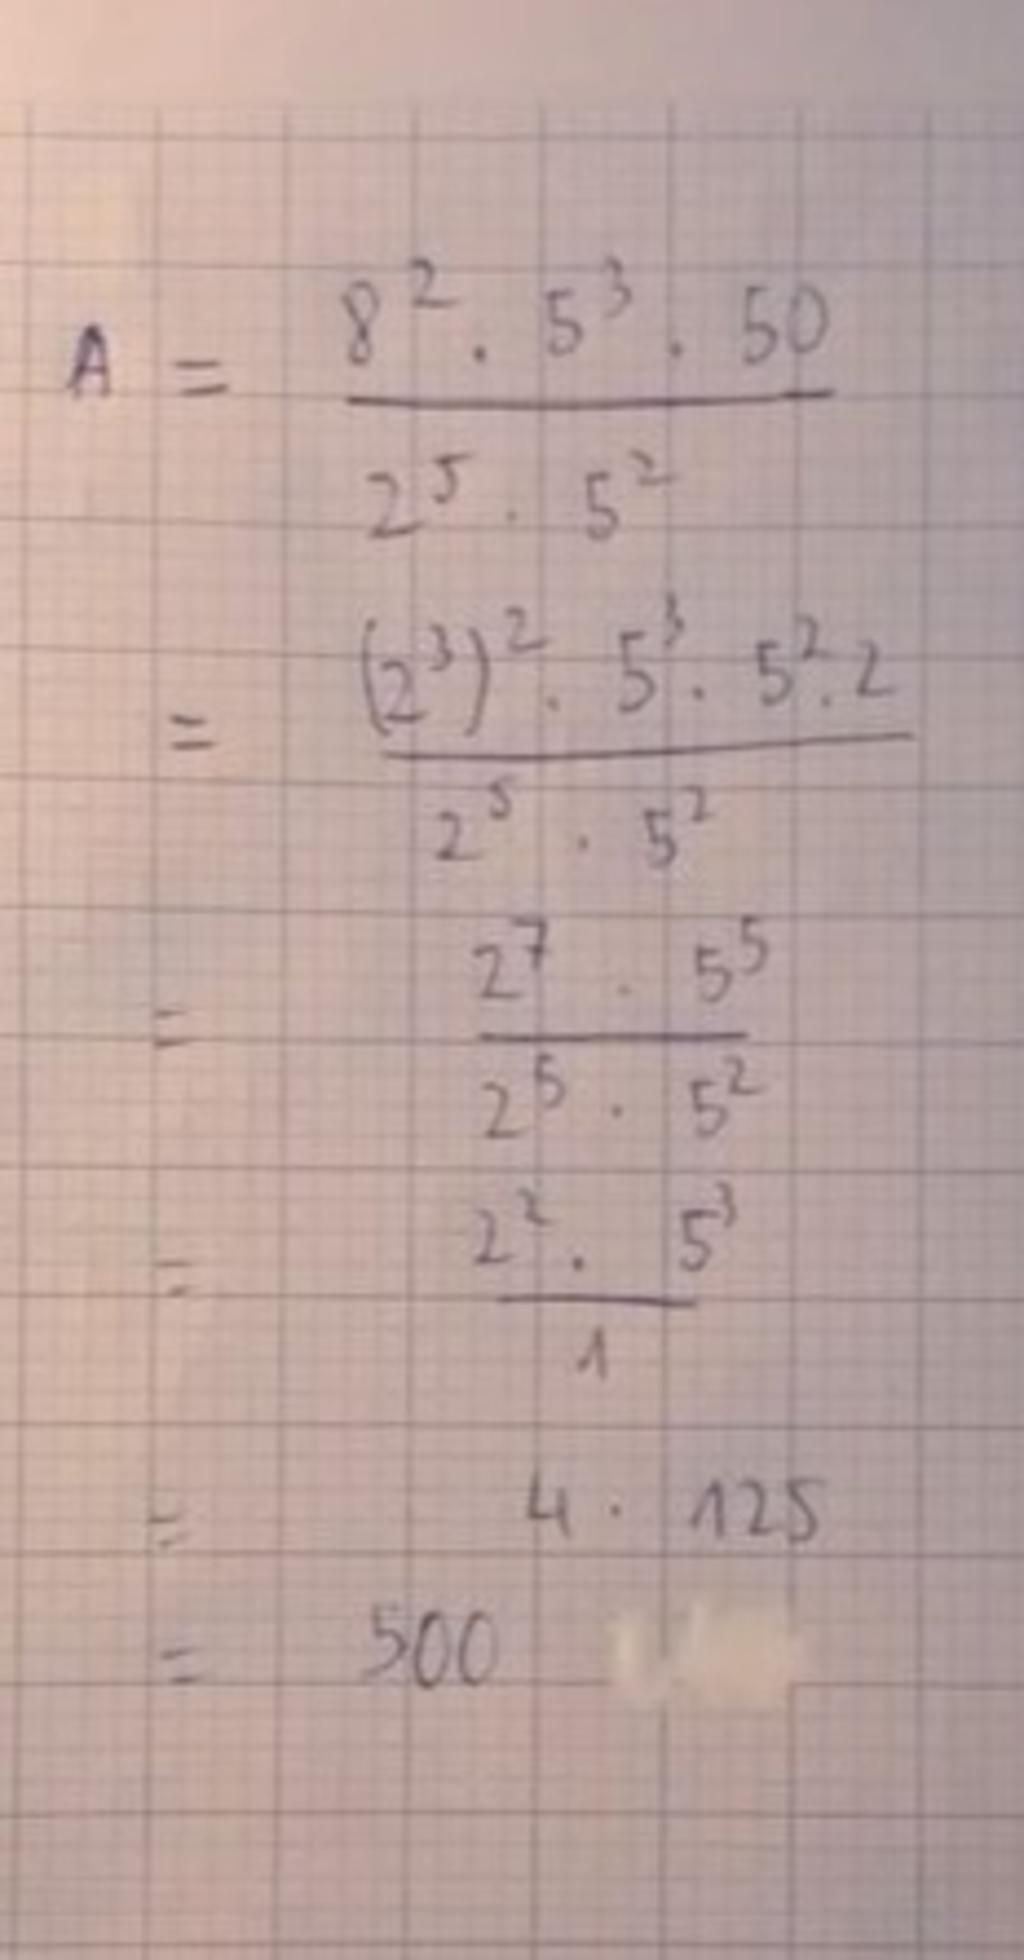 A = 8² . 5³ . 50
2⁵ . 5²
= (2³)² . 5³ . 5² . 2
2⁵ . 5²
= 2⁷ . 5⁵
2⁵ . 5²
= 2² . 5³
1
= 4 . 125
= 500